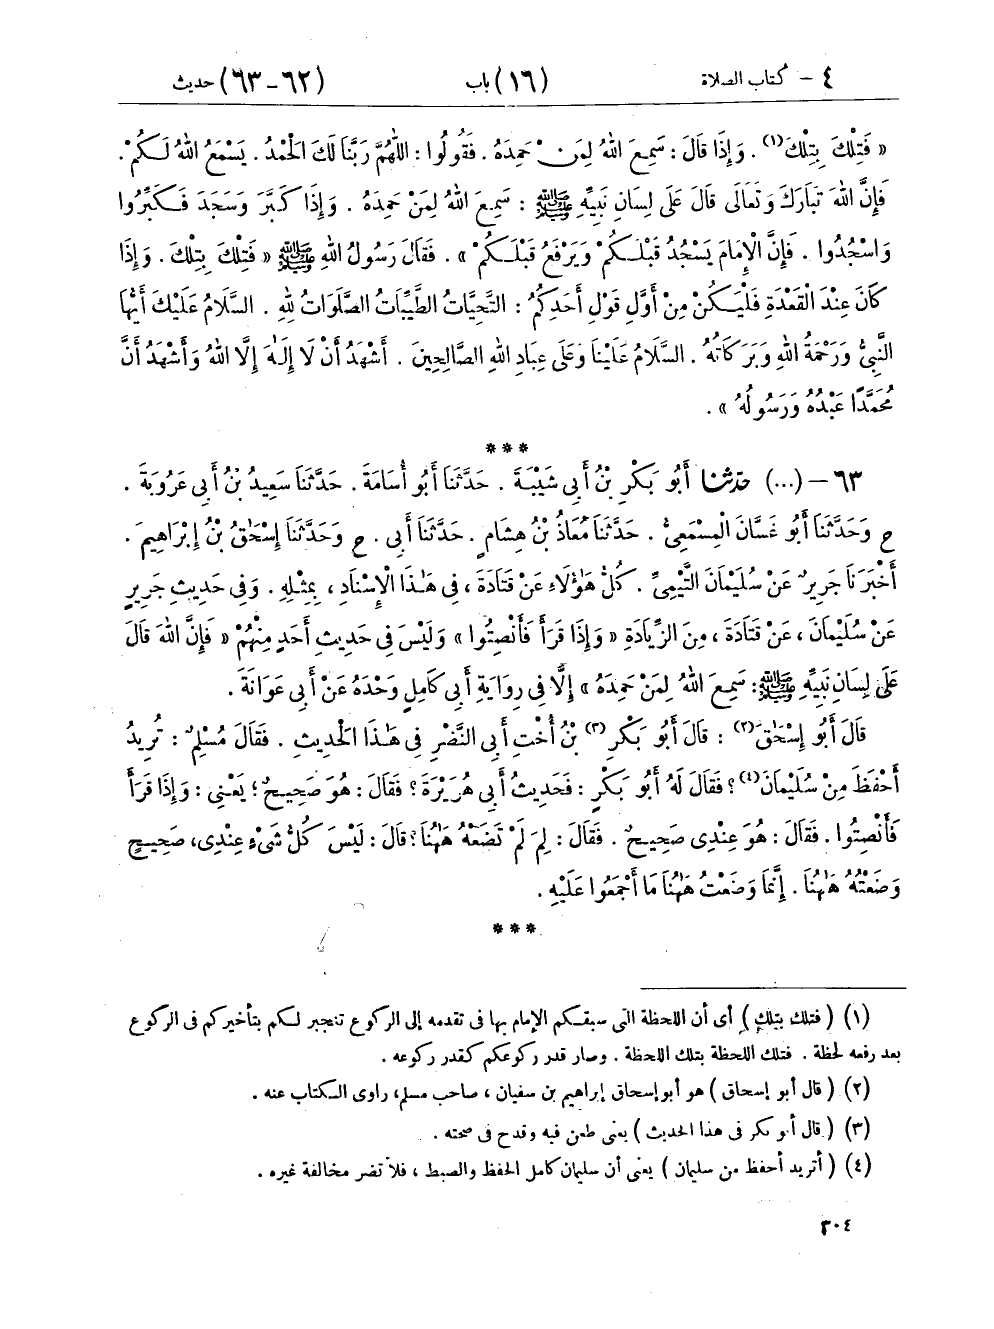 ٤ – كتاب الصلاة (١٦) باب (٦٢-٦٣) حديث
« فَتِلْكَ بِتِلْكَ(١) . وَإِذَا قَالَ : سَمِعَ اللهُ لِمَنْ حَمِدَهُ . فَقُولُوا : اللّٰهُمَّ رَبَّنَا لَكَ الْحَمْدُ . يَسْمَعُ اللهُ لَكُمْ .
فَإِنَّ اللهَ تَبَارَكَ وَتَعَالَى قَالَ عَلَى لِسَانِ نَبِيِّهِ ﷺ : سَمِعَ اللهُ لِمَنْ حَمِدَهُ . وَإِذَا كَبَّرَ وَسَجَدَ فَكَبِّرُوا
وَاسْجُدُوا . فَإِنَّ الْإِمَامَ يَسْجُدُ قَبْلَكُمْ وَيَرْفَعُ قَبْلَكُمْ » . فَقَالَ رَسُولُ اللهِ ﷺ « فَتِلْكَ بِتِلْكَ . وَإِذَا
كَانَ عِنْدَ الْقَعْدَةِ فَلْيَكُنْ مِنْ أَوَّلِ قَوْلِ أَحَدِكُمُ : التَّحِيَّاتُ الطَّيِّبَاتُ الصَّلَوَاتُ لِلهِ . السَّلَامُ عَلَيْكَ أَيُّهَا
النَّبِيُّ وَرَحْمَةُ اللهِ وَبَرَكَاتُهُ . السَّلَامُ عَلَيْنَا وَعَلَى عِبَادِ اللهِ الصَّالِحِينَ . أَشْهَدُ أَنْ لَا إِلَهَ إِلَّا اللهُ وَأَشْهَدُ أَنَّ
مُحَمَّدًا عَبْدُهُ وَرَسُولُهُ » .
***
٦٣ – (...) حدّثنا أَبُو بَكْرِ بْنُ أَبِي شَيْبَةَ . حَدَّثَنَا أَبُو أُسَامَةَ . حَدَّثَنَا سَعِيدُ بْنُ أَبِي عَرُوبَةَ .
ح وَحَدَّثَنَا أَبُو غَسَّانَ الْمِسْمَعِيُّ . حَدَّثَنَا مُعَاذُ بْنُ هِشَامٍ . حَدَّثَنَا أَبِي . ح وَحَدَّثَنَا إِسْحَاقُ بْنُ إِبْرَاهِيمَ .
أَخْبَرَنَا جَرِيرٌ عَنْ سُلَيْمَانَ التَّيْمِيِّ . كُلُّ هَؤُلَاءِ عَنْ قَتَادَةَ ، فِي هَذَا الْإِسْنَادِ ، بِمِثْلِهِ . وَفِي حَدِيثِ جَرِيرٍ
عَنْ سُلَيْمَانَ ، عَنْ قَتَادَةَ ، مِنَ الزِّيَادَةِ « وَإِذَا قَرَأَ فَأَنْصِتُوا » وَلَيْسَ فِي حَدِيثِ أَحَدٍ مِنْهُمْ « فَإِنَّ اللهَ قَالَ
عَلَى لِسَانِ نَبِيِّهِ ﷺ : سَمِعَ اللهُ لِمَنْ حَمِدَهُ » إِلَّا فِي رِوَايَةِ أَبِي كَامِلٍ وَحْدَهُ عَنْ أَبِي عَوَانَةَ .
قَالَ أَبُو إِسْحَاقَ(٢) : قَالَ أَبُو بَكْرِ(٣) بْنُ أُخْتِ أَبِي النَّضْرِ فِي هَذَا الْحَدِيثِ . فَقَالَ مُسْلِمٌ : تُرِيدُ
أَحْفَظَ مِنْ سُلَيْمَانَ(٤) ؟ فَقَالَ لَهُ أَبُو بَكْرٍ : فَحَدِيثُ أَبِي هُرَيْرَةَ ؟ فَقَالَ : هُوَ صَحِيحٌ ؛ يَعْنِي : وَإِذَا قَرَأَ
فَأَنْصِتُوا . فَقَالَ : هُوَ عِنْدِي صَحِيحٌ . فَقَالَ : لِمَ لَمْ تَضَعْهُ هَهُنَا ؟ قَالَ : لَيْسَ كُلُّ شَيْءٍ عِنْدِي، صَحِيحٍ
وَضَعْتُهُ هَهُنَا . إِنَّمَا وَضَعْتُ هَهُنَا مَا أَجْمَعُوا عَلَيْهِ .
***
(١) ( فتلك بتلك ) أى أن اللحظة التى سبقكم الإمام بها فى تقدمه إلى الركوع تنجبر لكم بتأخيركم فى الركوع
بعد رفعه لحظة . فتلك اللحظة بتلك اللحظة . وصار قدر ركوعكم كقدر ركوعه .
(٢) ( قال أبو إسحاق ) هو أبو إسحاق إبراهيم بن سفيان ، صاحب مسلم، راوى الكتاب عنه .
(٣) ( قال أبو بكر فى هذا الحديث ) يعنى طعن فيه وقدح فى صحته .
(٤) ( أتريد أحفظ من سليمان ) يعنى أن سليمان كامل الحفظ والضبط ، فلا تضر مخالفة غيره .
٣٠٤